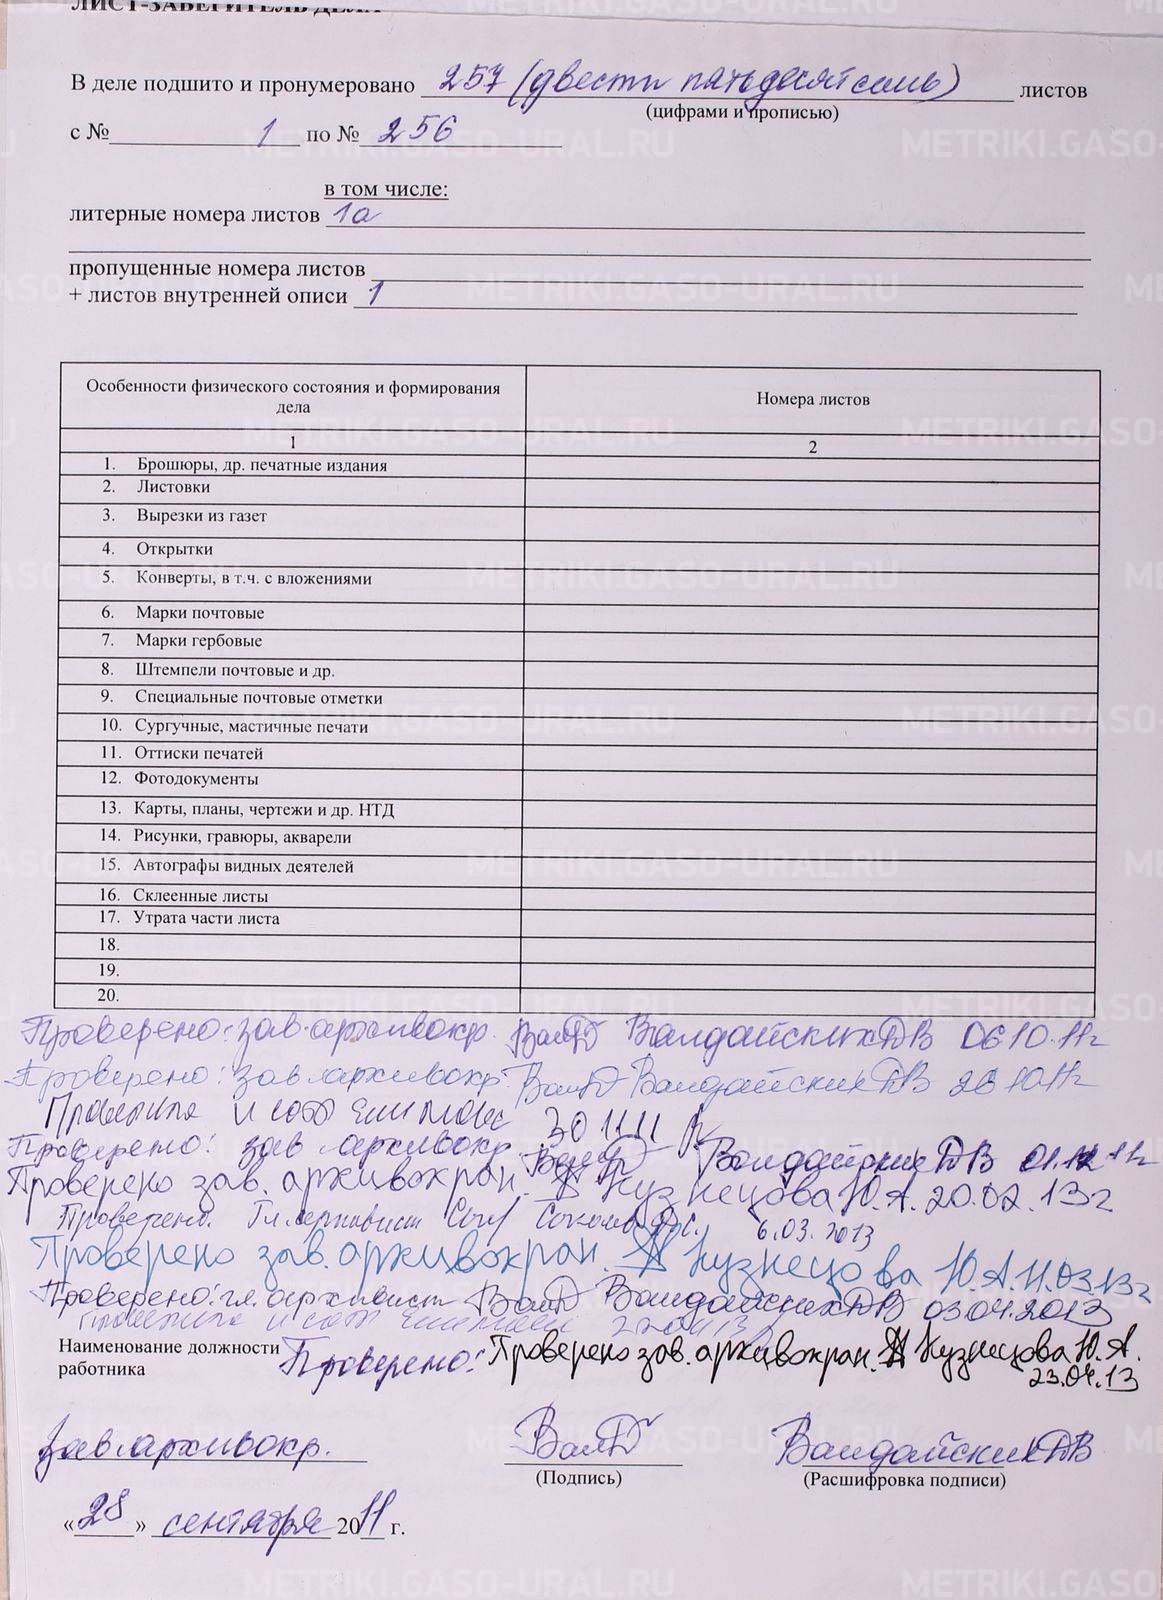 ЛИСТ-ЗАВЕРИТЕЛЬ ДЕЛА
В деле подшито и пронумеровано 257 (двести пятьдесят семь) листов
(цифрами и прописью)
с № 1 по № 256
в том числе:
литерные номера листов 1а
пропущенные номера листов
+ листов внутренней описи 1
Особенности физического состояния и формирования дела
Номера листов
1
2
1. Брошюры, др. печатные издания
2. Листовки
3. Вырезки из газет
4. Открытки
5. Конверты, в т.ч. с вложениями
6. Марки почтовые
7. Марки гербовые
8. Штемпели почтовые и др.
9. Специальные почтовые отметки
10. Сургучные, мастичные печати
11. Оттиски печатей
12. Фотодокументы
13. Карты, планы, чертежи и др. НТД
14. Рисунки, гравюры, акварели
15. Автографы видных деятелей
16. Склеенные листы
17. Утрата части листа
18.
19.
20.
Проверено: зав. архивохр. Валд Валдайских ДВ 06.10.11г
Проверено: зав. архивохр. Валд Валдайских ДВ 28.10.11г
30 11 11
Проверено: зав. архивохр. Валд Валдайских ДВ 01.12.11г
Проверено зав. архивохран. Кузнецова Ю.А. 20.02.13г
Проверено. Гл. архивист 6.03.2013
Проверено зав. архивохран. Кузнецова Ю.А. 11.03.13г
Проверено: гл. архивист ВалД Валдайских ДВ 03.04.2013
Наименование должности
работника
Проверено: Проверено зав. архивохран. Кузнецова Ю.А.
23.04.13
Зав. архивохр. ВалД Валдайских ДВ
(Подпись) (Расшифровка подписи)
«28» сентября 2011 г.
METRIKI.GASO-URAL.RU